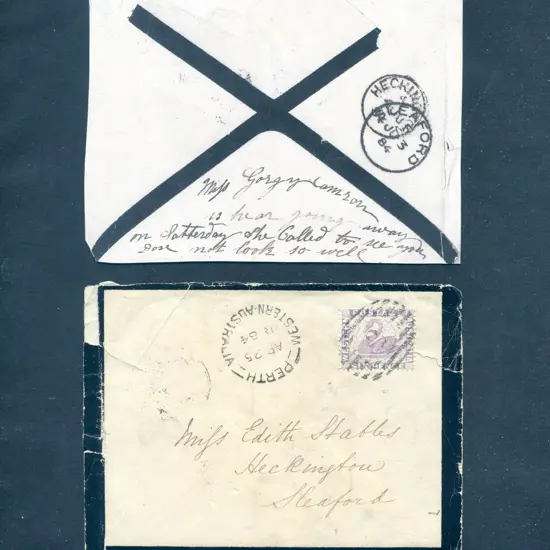 HECKING
SLEAFORD
JU 3
84
Miss Gorgy
is hear going away
on Satterday she Called to see you
dose not look so well
PERTH WESTERN-AUSTRALIA
AP 25
84
Miss Edith Stables
Heckington
Sleaford